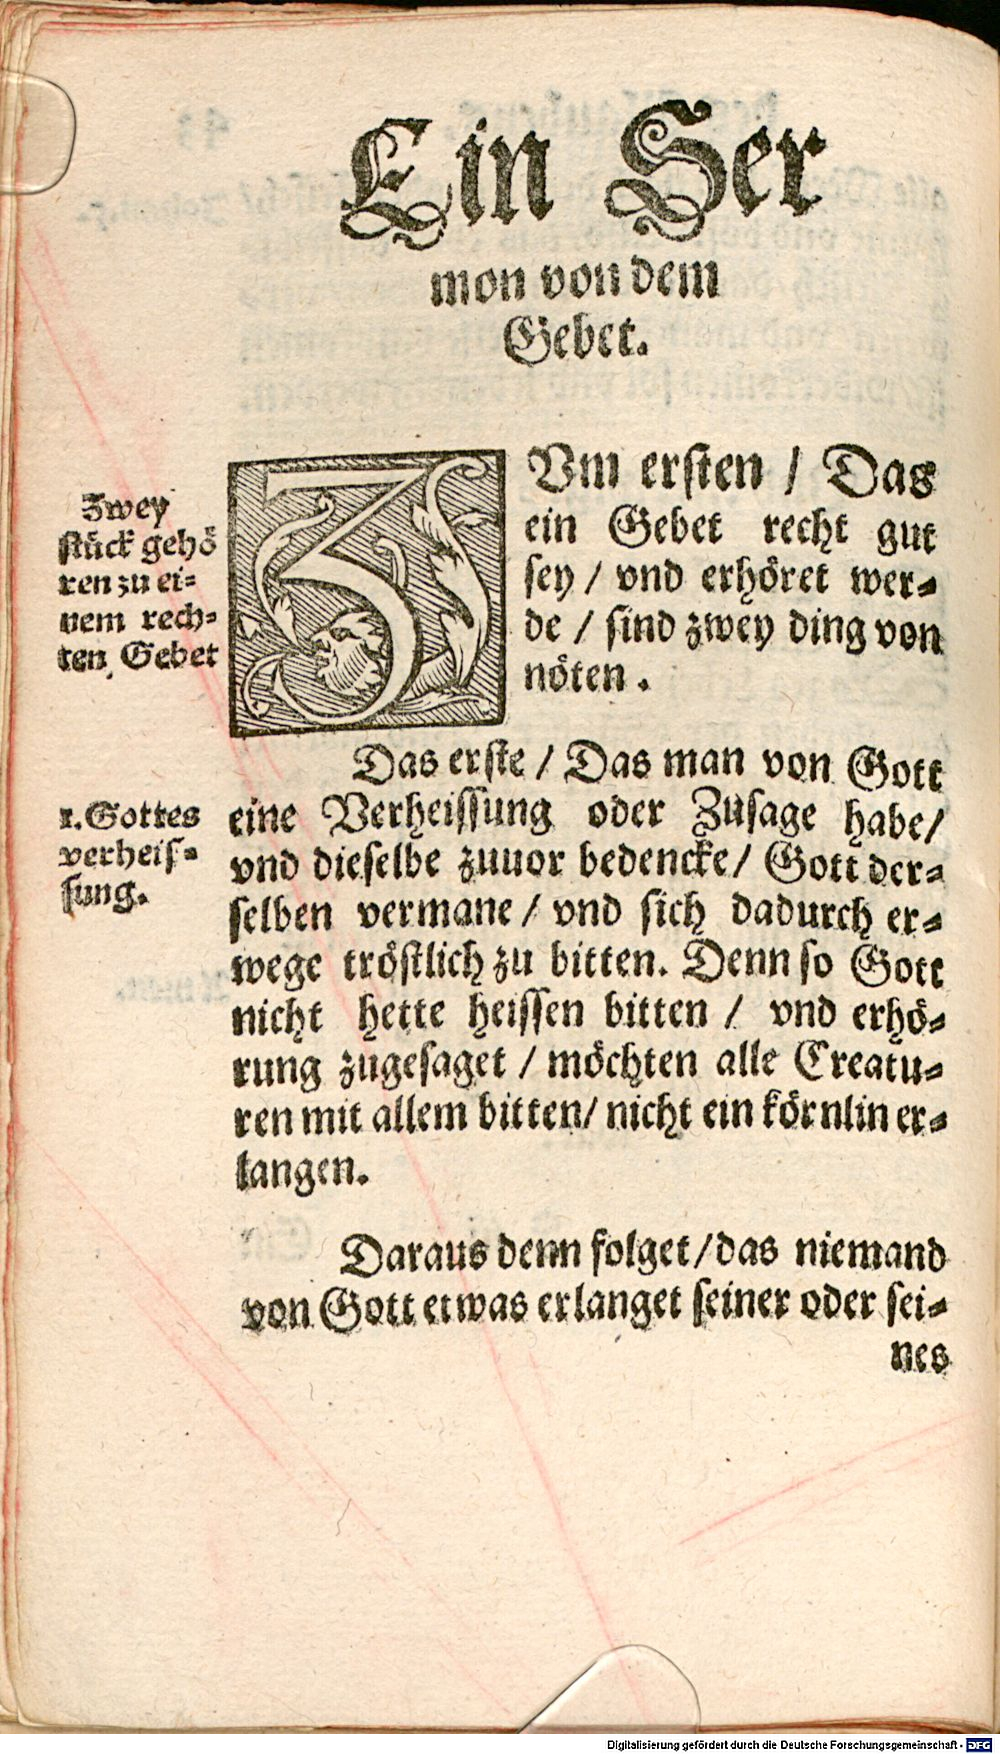 Ein Ser
mon von dem
Gebet.
Zwey
stück gehö
ren zu ei=
nem rech=
ten Gebet
ZVm ersten / Das
ein Gebet recht gut
sey / vnd erhöret wer=
de / sind zwey ding von
nöten .
Das erste / Das man von Gott
1. Gottes
verheis=
sung.
eine Verheissung oder Zusage habe/
vnd dieselbe zuuor bedencke/ Gott der=
selben vermane / vnd sich dadurch er=
wege tröstlich zu bitten. Denn so Gott
nicht hette heissen bitten / vnd erhö=
rung zugesaget / möchten alle Creatu=
ren mit allem bitten/ nicht ein körnlin er=
langen.
Daraus denn folget/das niemand
von Gott etwas erlanget seiner oder sei=
nes
Digitalisierung gefördert durch die Deutsche Forschungsgemeinschaft - DFG